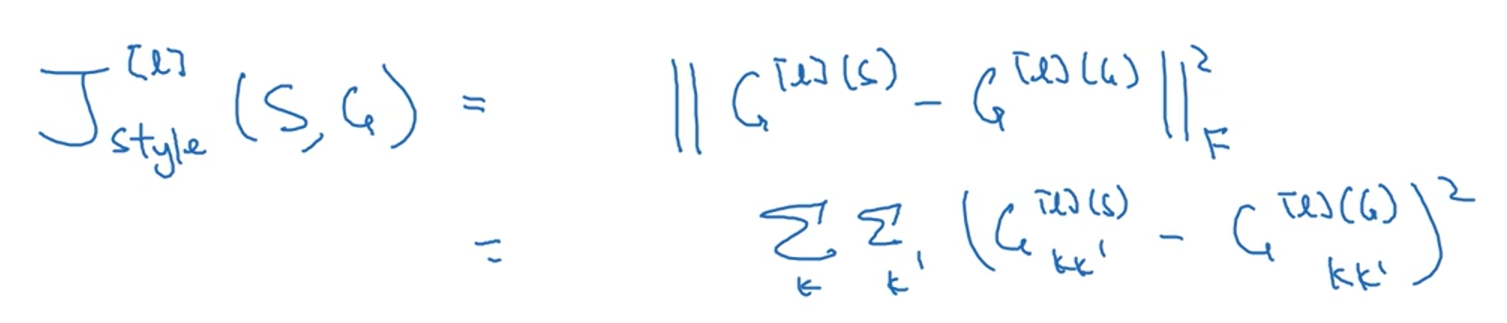 J^{[l]}_{style} (S, G) = || G^{[l](S)} - G^{[l](G)} ||^2_F
= Σ_k Σ_{k'} (G^{[l](S)}_{kk'} - G^{[l](G)}_{kk'})^2